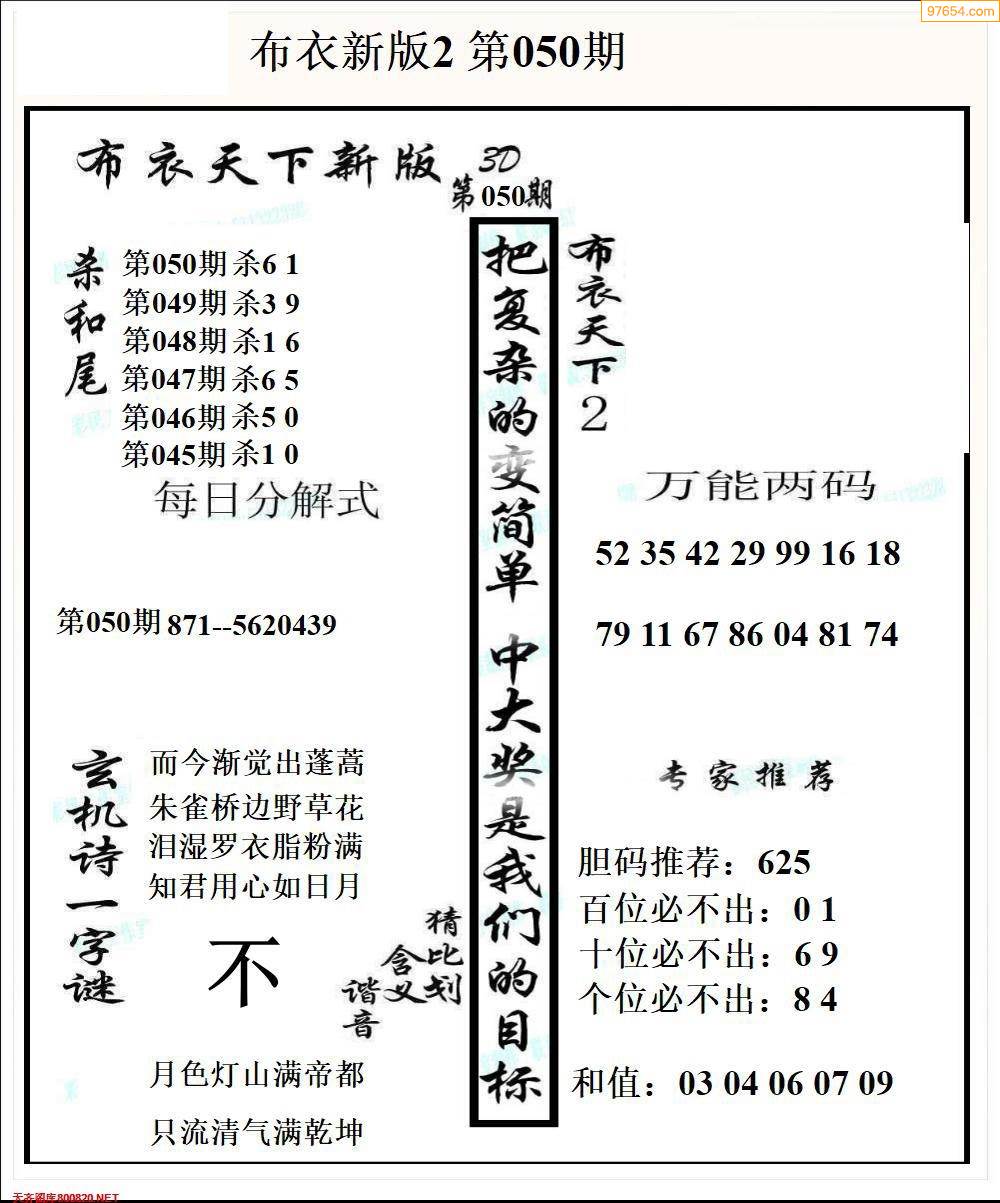 97654.com
布衣新版2 第050期
布衣天下新版 3D
第050期
杀和尾
第050期 杀6 1
第049期 杀3 9
第048期 杀1 6
第047期 杀6 5
第046期 杀5 0
第045期 杀1 0
每日分解式
第050期 871--5620439
玄机诗一字谜
而今渐觉出蓬蒿
朱雀桥边野草花
泪湿罗衣脂粉满
知君用心如日月
不
猜比划
含义
谐音
月色灯山满帝都
只流清气满乾坤
把复杂的变简单 中大奖是我们的目标
布衣天下2
万能两码
52 35 42 29 99 16 18
79 11 67 86 04 81 74
专家推荐
胆码推荐：625
百位必不出：0 1
十位必不出：6 9
个位必不出：8 4
和值：03 04 06 07 09
天齐图库800820.NET